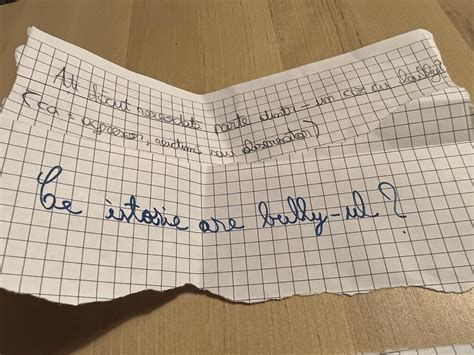 Ați făcut vreodată parte dintr-un caz de bully?
(ca agresor, victimă sau observator)
Ce istorie are bully-ul?